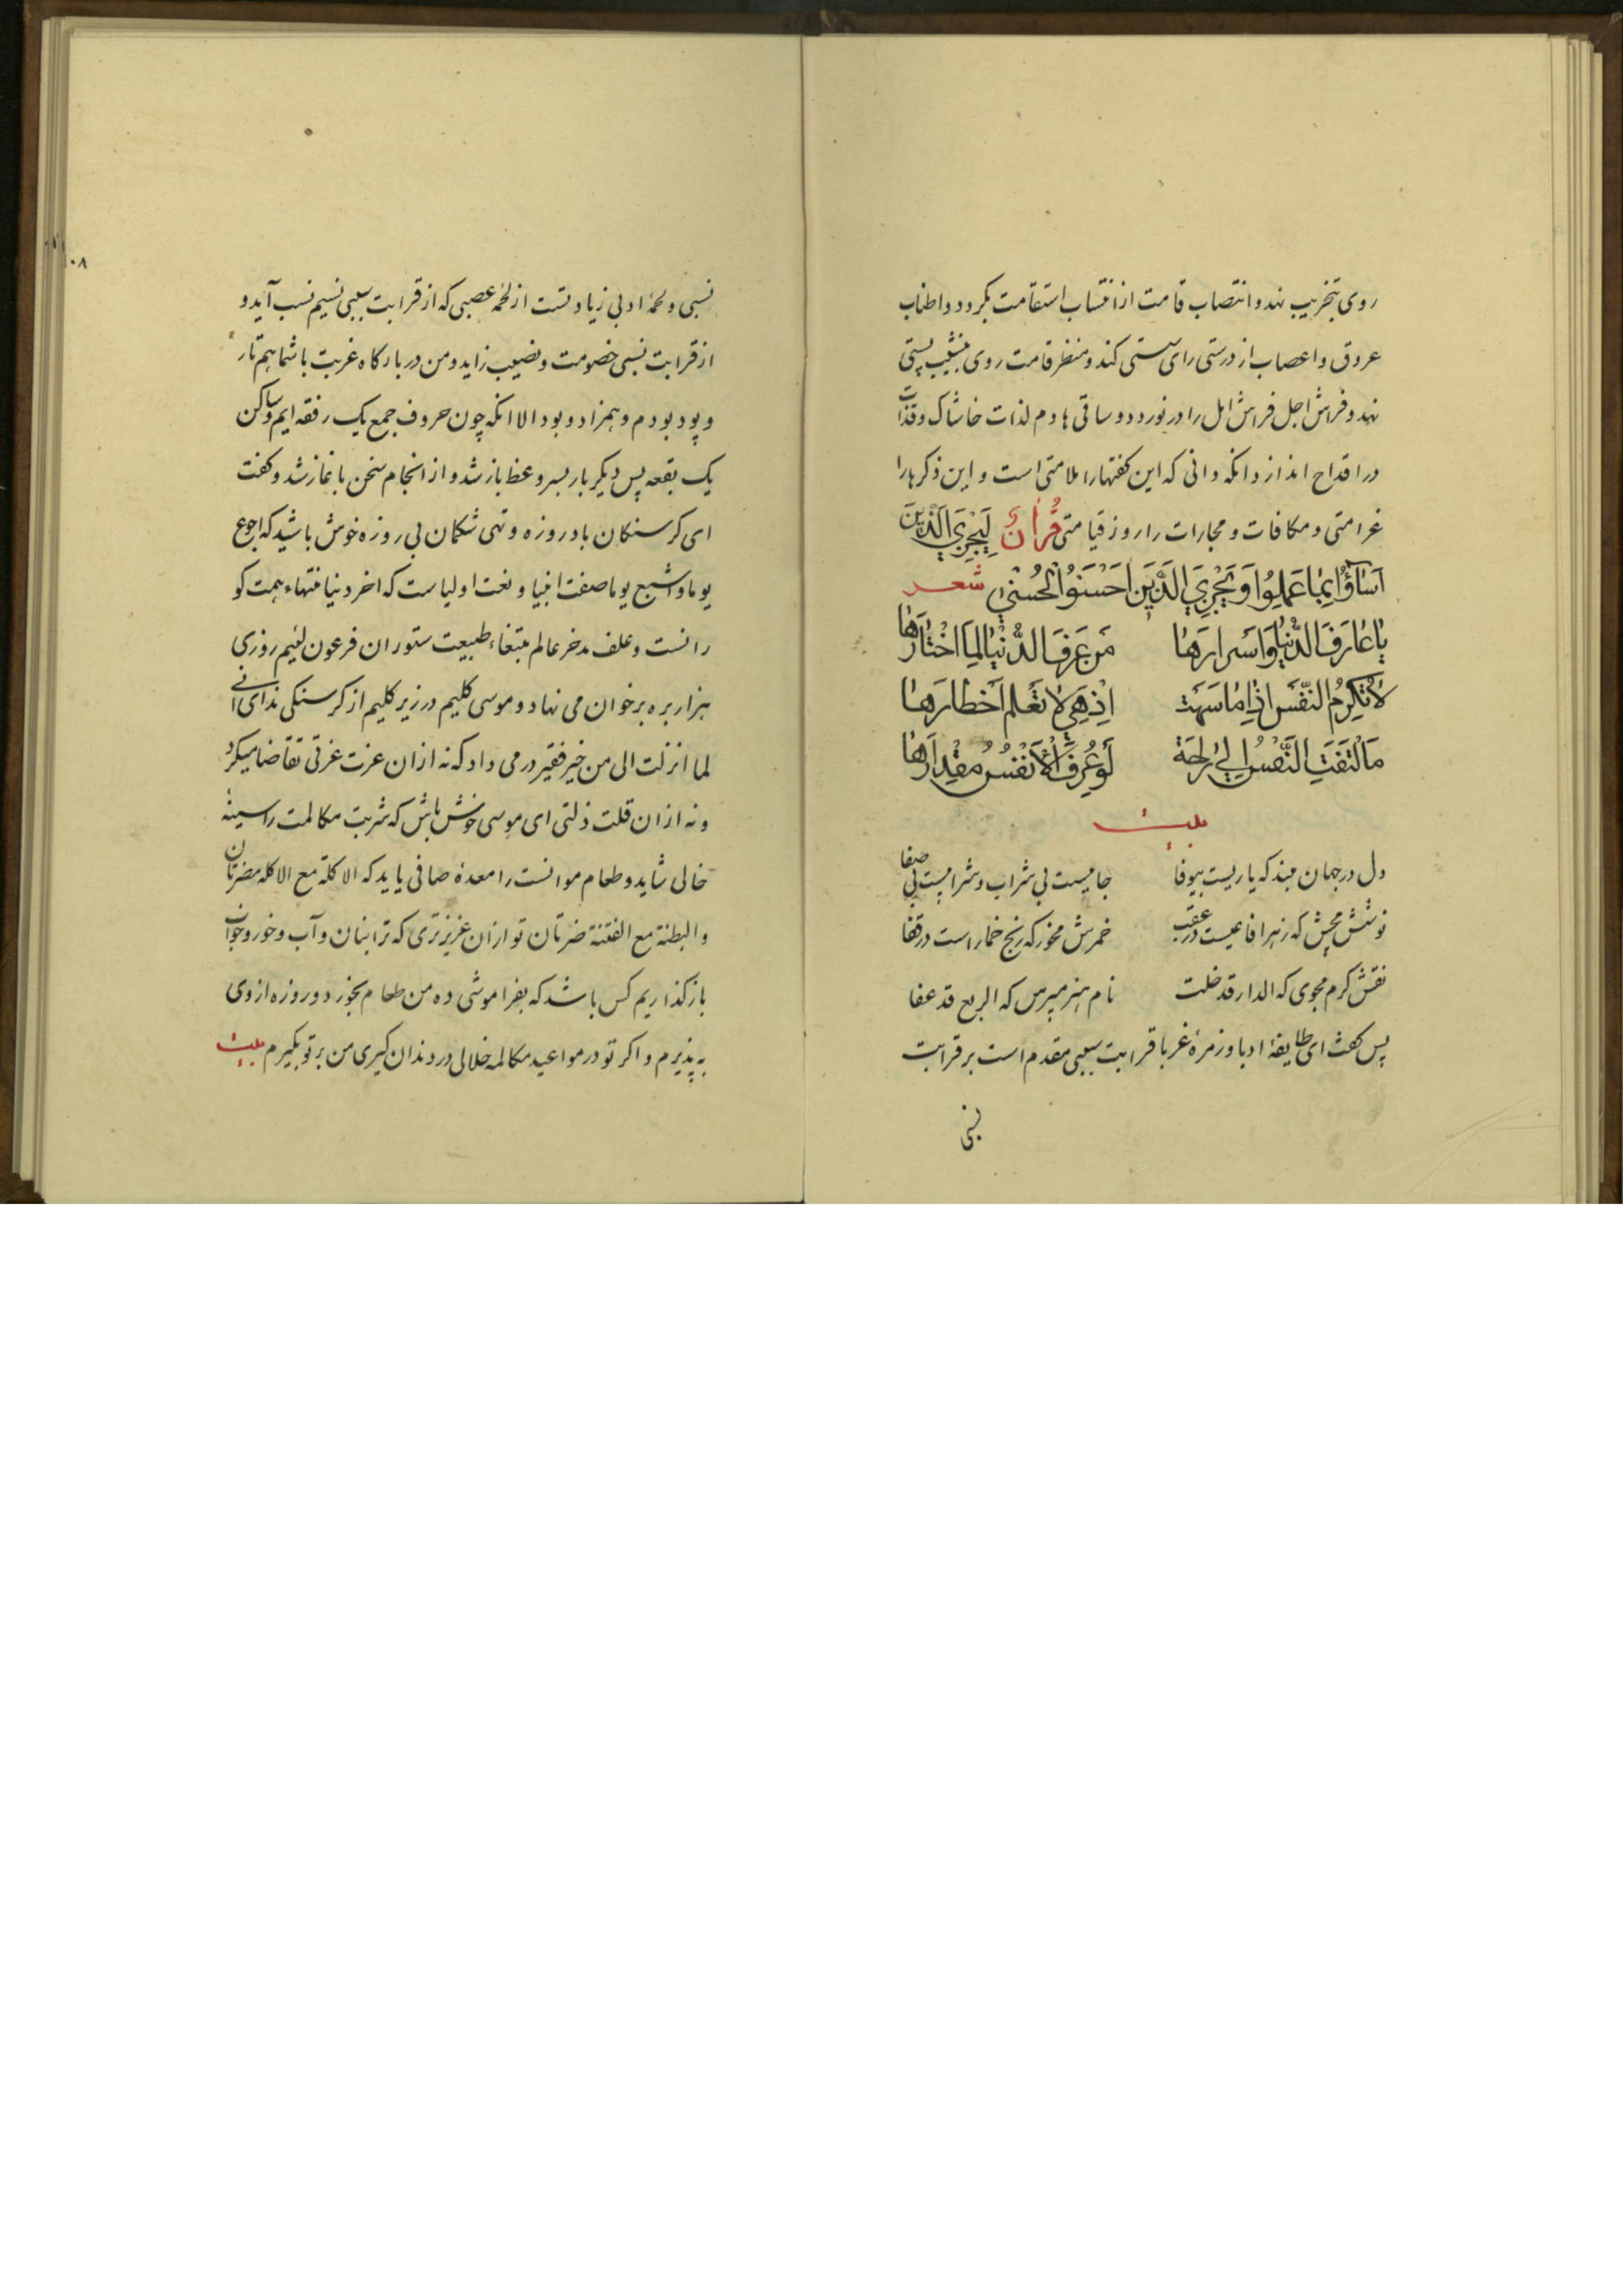 روی بتخریب نهد و انتصاب قامت از انتساب استقامت بگردد و اطناب
عروق و اعصاب از درستی رای سستی کند و منظر قامت روی بنشیب پستی
نهد و فراش اجل فراش امل را در نوردد و ساقی هادم لذات خاشاک و قذات
در اقداح اندازد انکه دانی که این کفتهارا ملامتی است و این ذکرهارا
غرامتی و مکافات و مجارات را روز قیامتی قرآن لیجزی الذین
اساؤا بما عملوا و یجزی الذین احسنوا الحسنی شعر
یا عارف الدنیا و اسرارها من عرف الدنیا لما اختارها
لا تکرم النفس اذا ما سهت اذ هی لا تعلم اخطارها
ما التفت النفس الی لراحة لو عرف الانفس مقدارها
بیت
دل در جهان مبند که یاریست بیوفا جامیست بی شراب و شرابیست بی صفا
نوشش مچش که زهر افاعیست در عقب خمرش مخور که رنج خمار است در قفا
نقش کرم مجوی که الدار قد خلت نام هنر مپرس که الربع قد عفا
پس کفت ای طایفهٔ ادبا و زمرهٔ غربا قرابت سببی مقدم است بر قرابت
نسبی
۱۰۸
نسبی و لحمهٔ ادبی زیادتست از لحمه عصبی که از قرابت سببی نسیم نسب آید و
از قرابت نسبی خصومت و نصیب زاید و من در بارکاه غربت با شما هم تار
و پود بودم و همزاد و بود الا انکه چون حروف جمع یک رفقه ایم و ساکن
یک بقعه پس دیکر بار بسر وعظ باز شد و از انجام سخن باغاز شد و کفت
ای کرسنکان بادروزه و تهی شکمان بی روزه خوش باشید که اجوع
یوما و اشبع یوما صفت انبیا و نعت اولیاست که اخر دنیا منتهاء همت کو
رانست و علف مدخر عالم مبتغاء طبیعت ستوران فرعون لئیم روزی
هزار بره بر خوان می نهاد و موسی کلیم در زیر کلیم از کرسنکی ندای انی
لما انزلت الی من خیر فقیر در می داد که نه ازان عزت غرتی تقاضا میکرد
و نه ازان قلت ذلتی ای موسی خوش باش که شربت مکالمت را سینهٔ
خالی شاید و طعام موانست را معدهٔ صافی یابد که الاکلة مع الاکله مضرتان
و البطنة مع الفتنة ضرتان تو ازان عزیزتری که ترا بنان و آب و خور و خواب
باز کذاریم کس باشد که بفراموشی ده من طعام بخورد و روزه از وی
به پذیرم و اکر تو در مواعید مکالمه خلالی در دندان کیری من بر تو بگیرم بیت